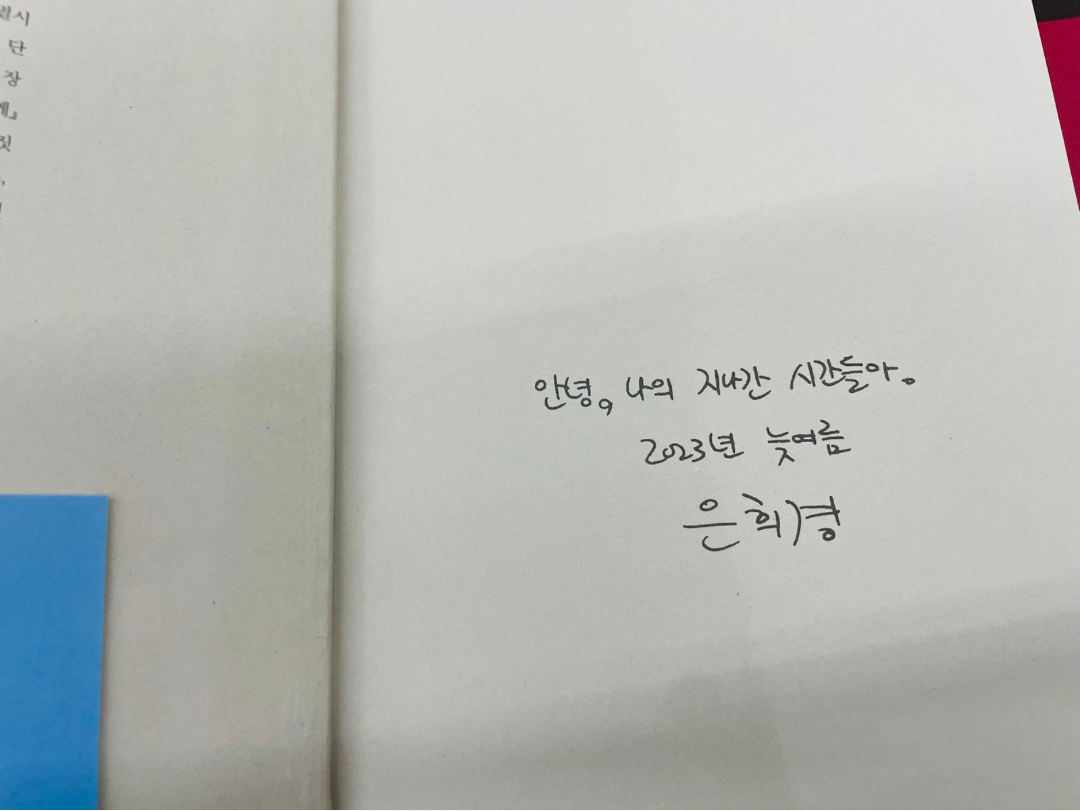 결시
단
장
게』
짓
안녕, 나의 지나간 시간들아.
2023년 늦여름
은희경